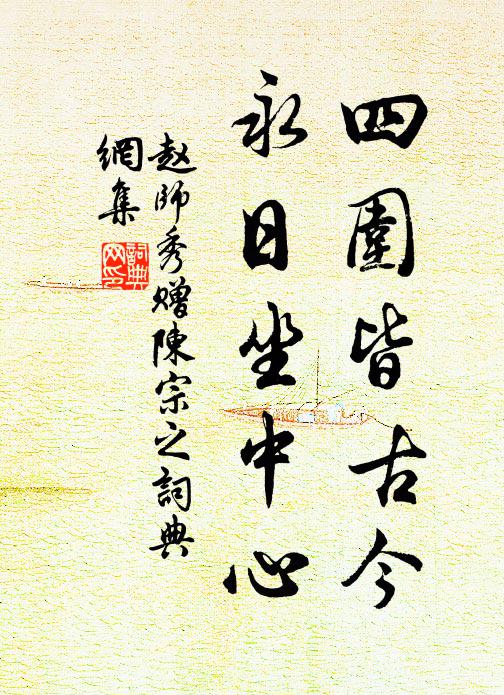 四圍皆古今
永日坐中心
赵師秀赠陳宗之詞典
網集
詞典
网印